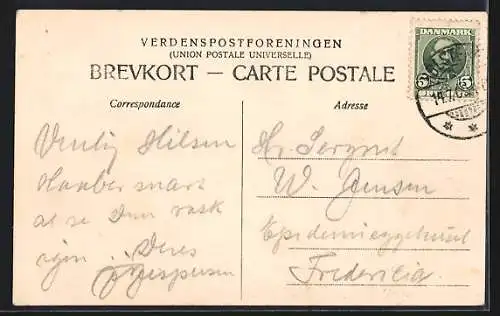 VERDENSPOSTFORENINGEN
(UNION POSTALE UNIVERSELLE)
BREVKORT — CARTE POSTALE
DANMARK
5 5
Correspondance
Adresse
Venlig Hilsen
Haaber snart
at se Dem rask
igen. Deres
J. Jespersen
Hr. Sergent
W. Jensen
Epidemisygehuset
Fredericia.